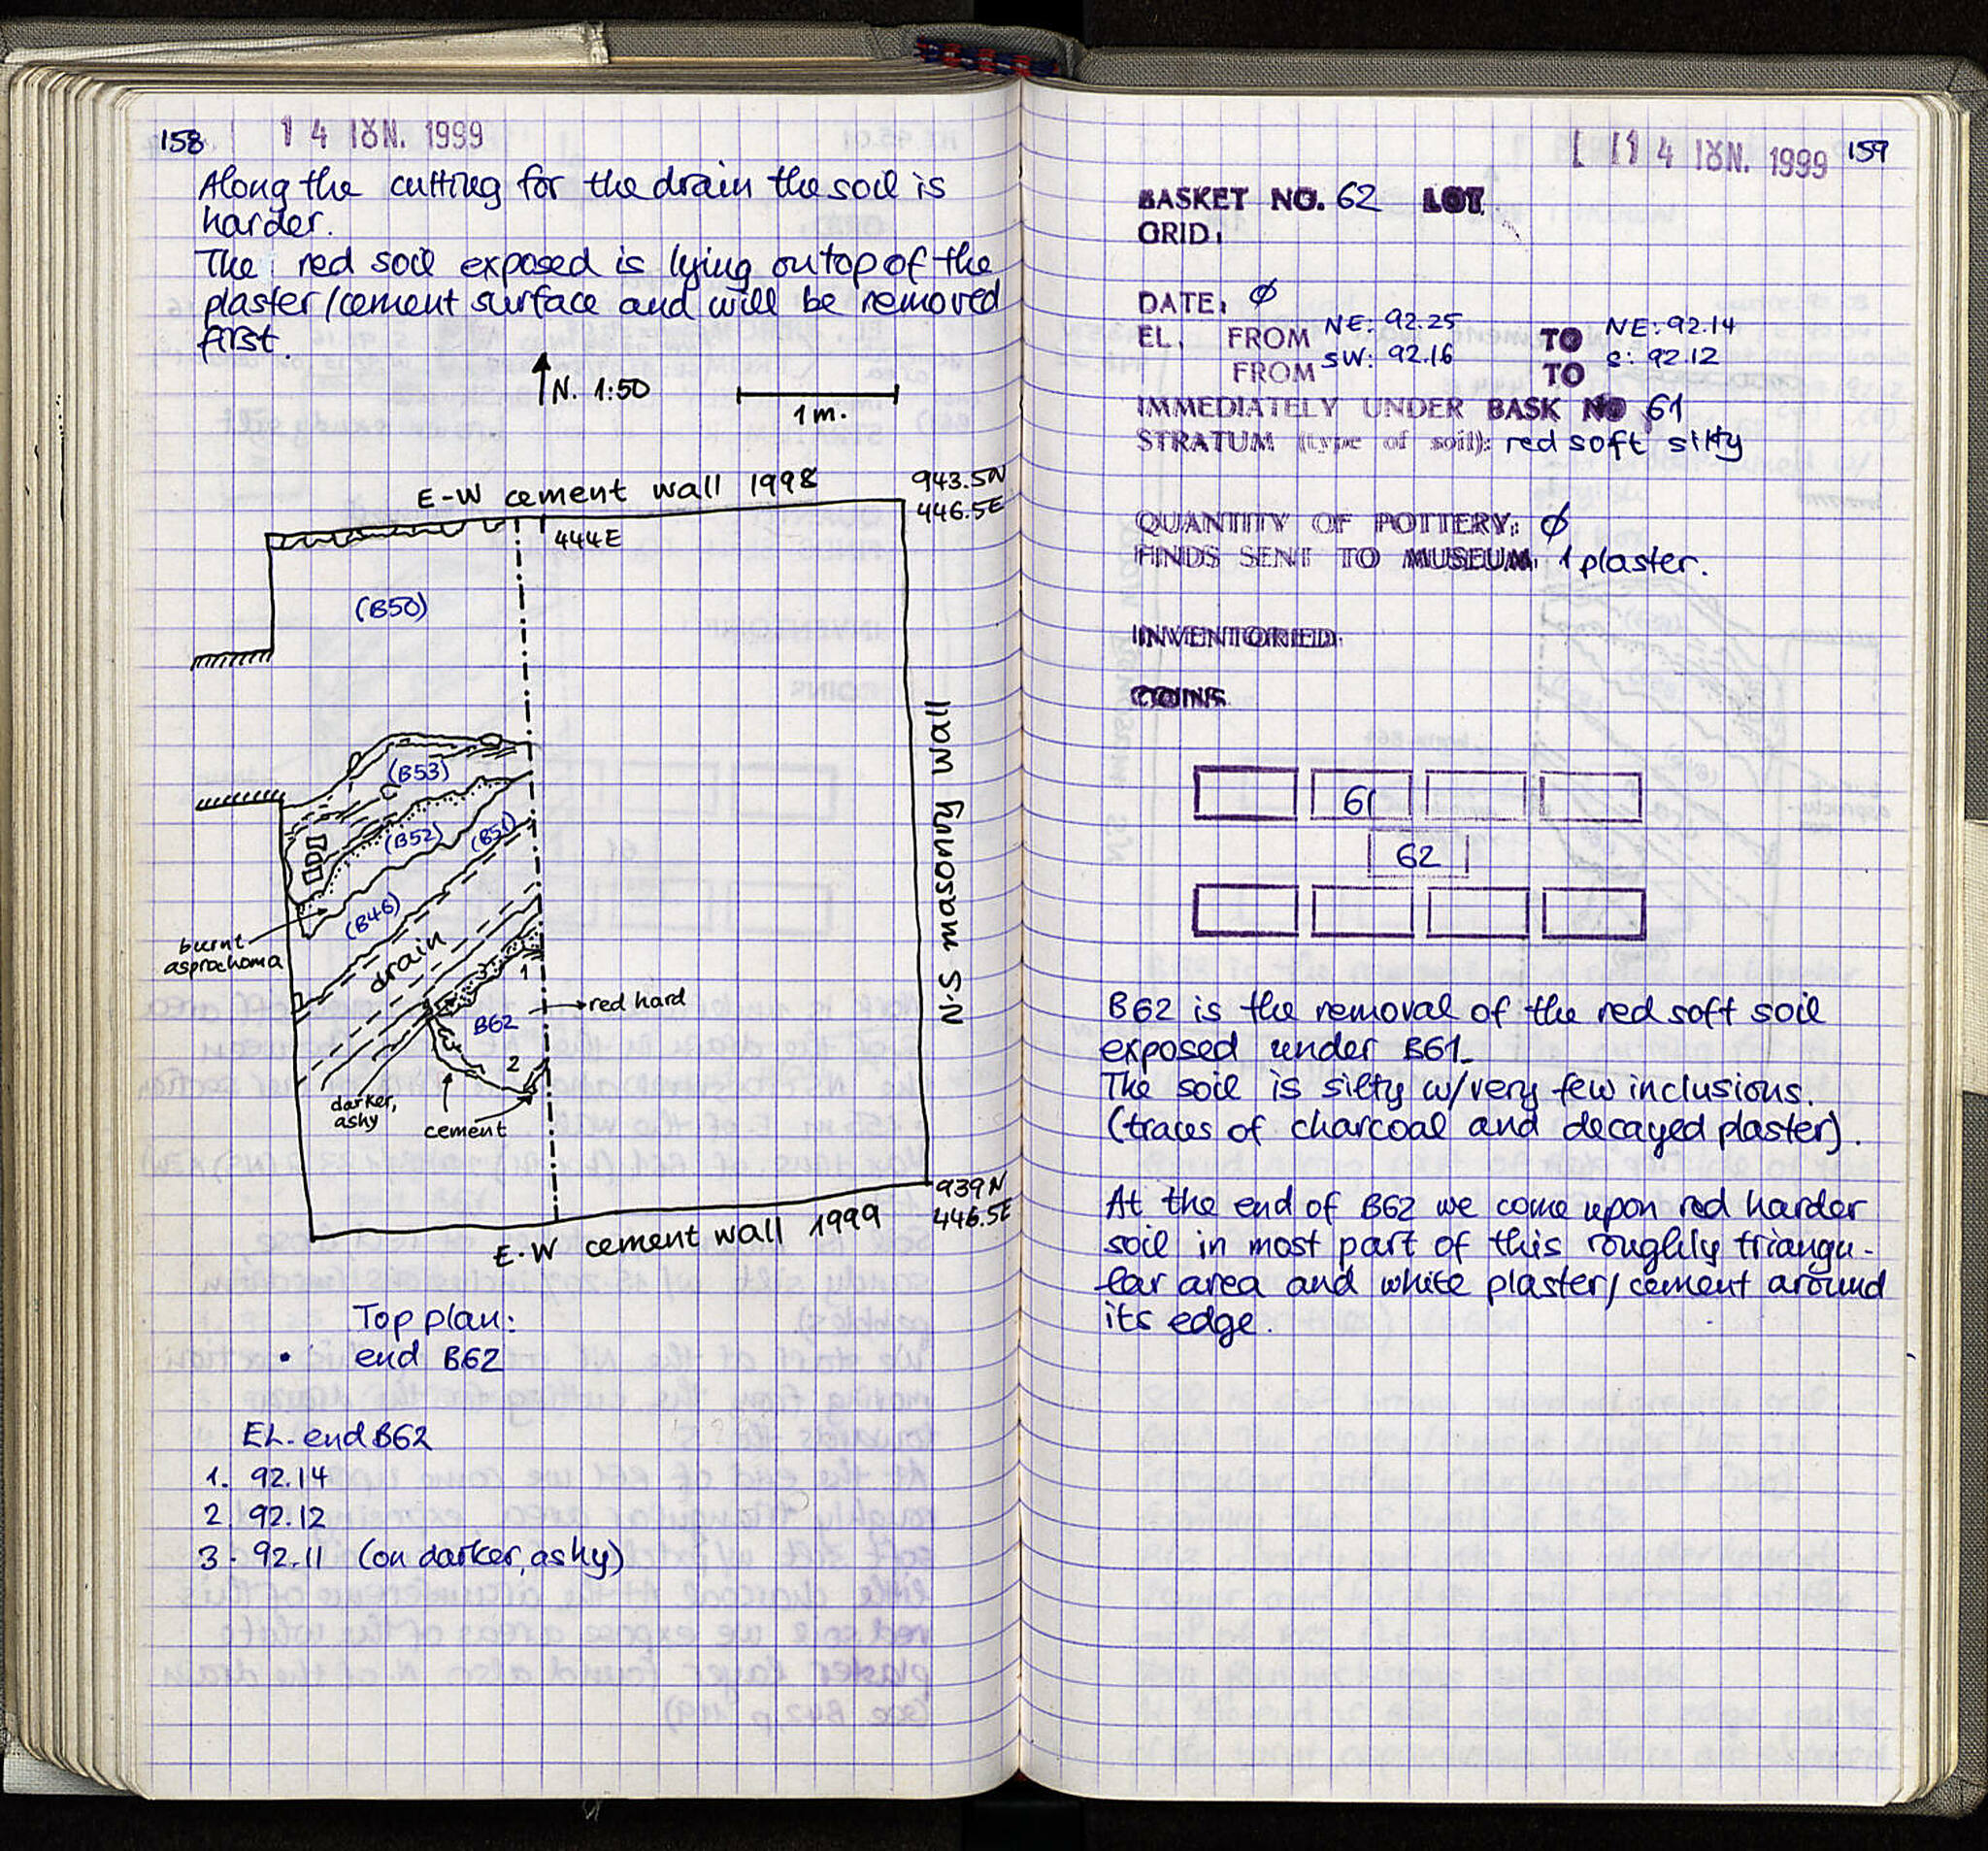 158
14 ΙΟΥΝ. 1999
Along the cutting for the drain the soil is
harder.
The red soil exposed is lying on top of the
plaster/cement surface and will be removed
first.
N. 1:50
1 m.
E-W cement wall 1998
943.5N
446.5E
444E
(B50)
N-S masonry wall
(B53)
(B52)
(B51)
(B46)
burnt
asprochoma
drain
3
1
red hard
B62
2
darker,
ashy
cement
939N
446.5E
E-W cement wall 1999
Top plan:
end B62
EL. end B62
1. 92.14
2. 92.12
3. 92.11 (on darker, ashy)
14 ΙΟΥΝ. 1999
159
BASKET NO. 62 LOT
GRID:
DATE: Ø
EL. FROM NE: 92.25 TO NE: 92.14
FROM SW: 92.16 TO S: 92.12
IMMEDIATELY UNDER BASK NO 61
STRATUM (type of soil): red soft silty
QUANTITY OF POTTERY: Ø
FINDS SENT TO MUSEUM: 1 plaster.
INVENTORIED:
COINS
61
62
B62 is the removal of the red soft soil
exposed under B61.
The soil is silty w/very few inclusions.
(traces of charcoal and decayed plaster).
At the end of B62 we come upon red harder
soil in most part of this roughly triangu-
lar area and white plaster/cement around
its edge.